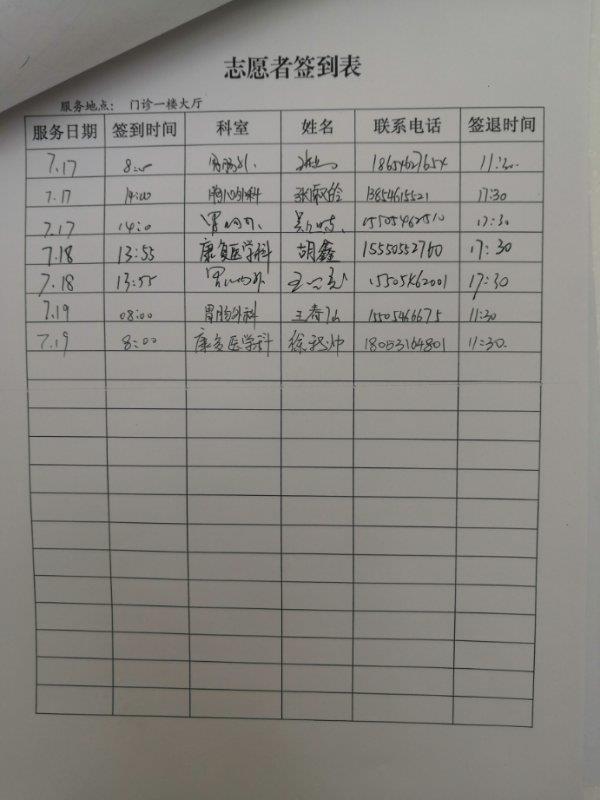 志愿者签到表
服务地点： 门诊一楼大厅
服务日期 签到时间 科室 姓名 联系电话 签退时间
7.17 胃肠外 18654627654 11:30.
7.17 14:00 胸心外科 13854615521 17:30
7.17 14:0 胃肠外 17:30
7.18 13:55 康复医学科 胡鑫 15550552760 17:30
7.18 13:55 胃肠外 15505462001 17:30
7.19 08:00 胃肠外科 王春 15505466675 11:30
7.19 8:00 康复医学科 徐 18053164801 11:30.